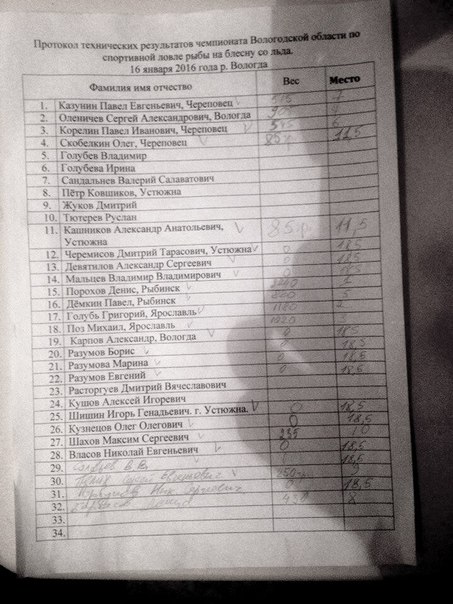 Протокол технических результатов чемпионата Вологодской области по
спортивной ловле рыбы на блесну со льда.
16 января 2016 года р. Вологда
Фамилия имя отчество Вес Место
1. Казунин Павел Евгеньевич, Череповец
2. Оленичев Сергей Александрович, Вологда
3. Корелин Павел Иванович, Череповец
4. Скобелкин Олег, Череповец 11,5
5. Голубев Владимир
6. Голубева Ирина
7. Сандальнев Валерий Салаватович
8. Пётр Ковщиков, Устюжна
9. Жуков Дмитрий
10. Тютерев Руслан
11. Кашников Александр Анатольевич, 11,5
Устюжна
12. Черемисов Дмитрий Тарасович, Устюжна 0 18,5
13. Девятилов Александр Сергеевич 0 18,5
14. Мальцев Владимир Владимирович 0
15. Порохов Денис, Рыбинск
16. Дёмкин Павел, Рыбинск
17. Голубь Григорий, Ярославль
18. Поз Михаил, Ярославль
19. Карпов Александр, Вологда 0 18,5
20. Разумов Борис 0 18,5
21. Разумова Марина 0 18,5
22. Разумов Евгений 0 18,5
23. Расторгуев Дмитрий Вячеславович
24. Кушов Алексей Игоревич
25. Шишин Игорь Генадьевич. г. Устюжна. 0 18,5
26. Кузнецов Олег Олегович 0 18,5
27. Шахов Максим Сергеевич 235 10
28. Власов Николай Евгеньевич 0 18,5
29. В.В. 18,5
30.
31. 0 18,5
32. 8
33.
34.